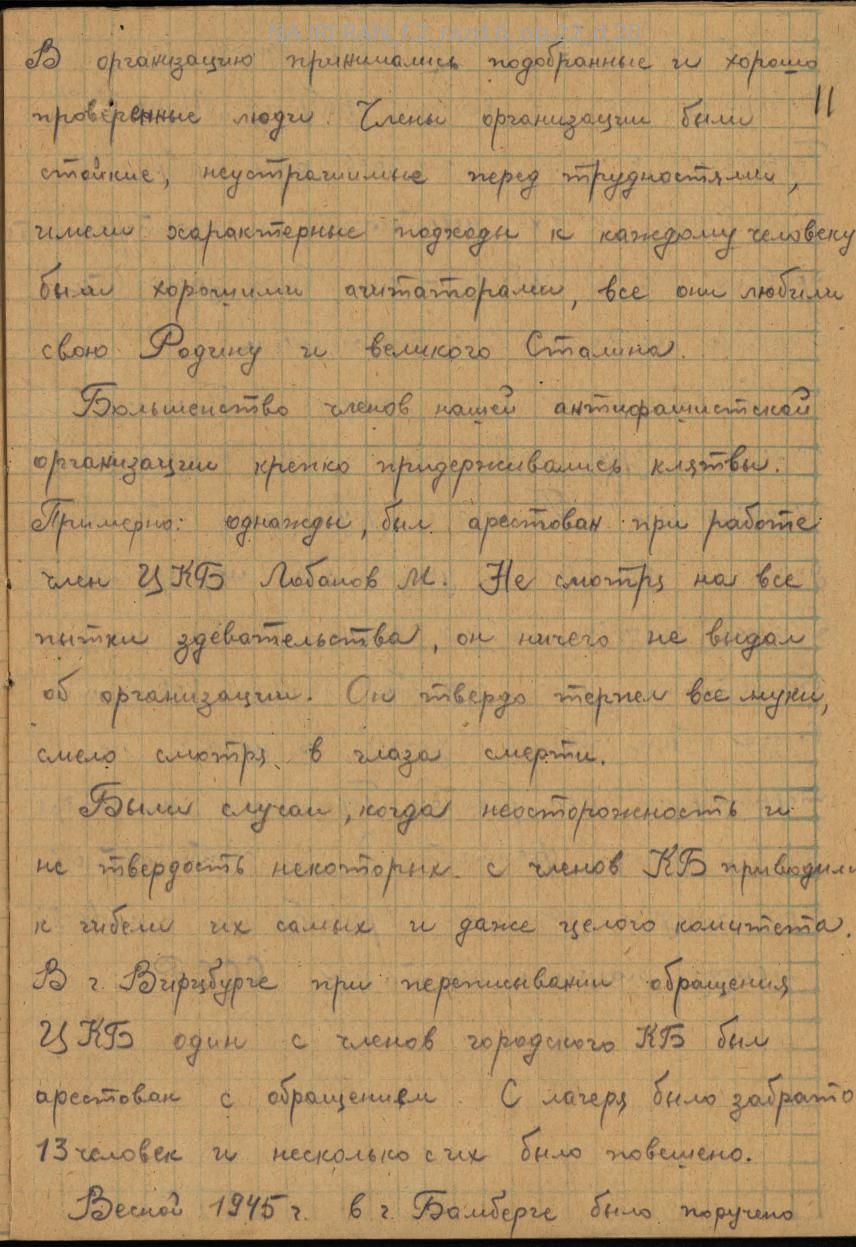 В организацию принимались подобранные и хорошо
11
проверенные люди. Члены организации были
стойкие, неустрашимые перед трудностями,
имели характерные подходы к каждому человеку
были хорошими агитаторами, все они любили
свою Родину и великого Сталина.
Большенство членов нашей антифашистской
организации крепко придерживались клятвы.
Примерно: однажды, был арестован при работе
член ЦКБ Лобанов М. Не смотря на все
пытки здевательства, он ничего не выдал
об организации. Он твердо терпел все муки,
смело смотря в глаза смерти.
Были случаи, когда неосторожность и
не твердость некоторых с членов КБ приводили
к гибели их самых и даже целого комитета.
В г. Вирцбурге при переписывании обращения
ЦКБ один с членов городского КБ был
арестован с обращением. С лагеря было забрато
13 человек и несколько с их было повешено.
Весной 1945 г. в г. Бамберге было поручено